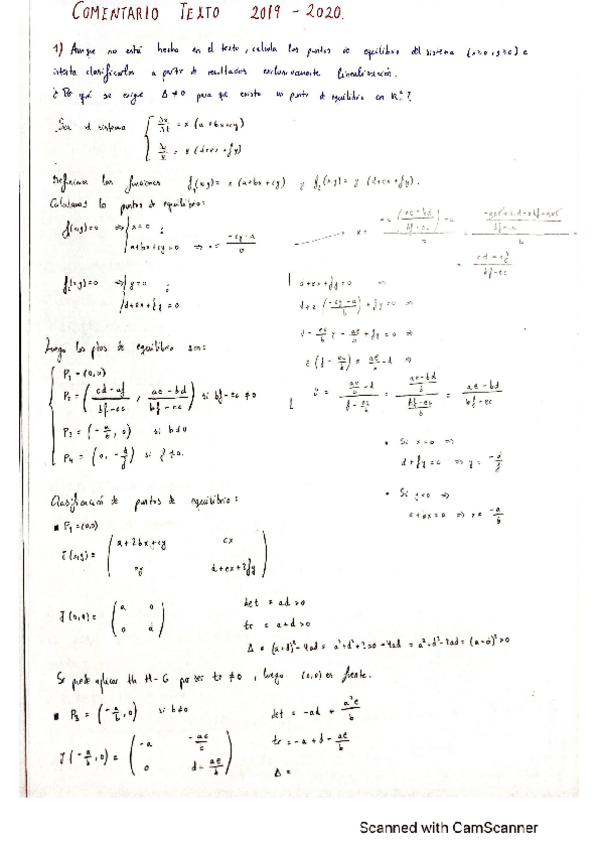 COMENTARIO TEXTO 2019 - 2020.
1) Aunque no está hecho en el texto, calcula los puntos de equilibrio del sistema (x≥0, y≥0) e
intenta clasificarlos a partir de resultados exclusivamente linealización.
¿Por qué se exige Δ ≠ 0 para que exista un punto de equilibrio en R²?
Sea el sistema
= x (a+bx+cy)
= y (d+ex+fy)
Definimos las funciones f₁(x,y) = x (a+bx+cy) y f₂(x,y) = y (d+ex+fy).
Calculamos los puntos de equilibrio:
f₁(x,y)=0 ⇒ x=0 ;
a+bx+cy=0 ⇒ x = (-cy-a)/b
f₂(x,y)=0 ⇒ y=0 ;
d+ex+fy=0
d+ex+fy=0 ⇒
d+e((-cy-a)/b)+fy=0 ⇒
d - (ec/b) y - ae/b + fy = 0 ⇒
Luego los ptos de equilibrio son:
P₁ = (0,0)
P₂ = ((cd-af)/(bf-ec), (ae-bd)/(bf-ec)) si bf-ec ≠0
P₃ = (-a/b, 0) si b≠0
P₄ = (0, -d/f) si f≠0.
• Si x=0 ⇒
d+fy=0 ⇒ y = -d/f
• Si y=0 ⇒
a+bx=0 ⇒ x = -a/b
Clasificación de puntos de equilibrio:
▪ P₁=(0,0)
J(x,y) = (a+2bx+cy cx
ey d+ex+2fy)
J(0,0) = (a 0
0 d)
det = ad >0
tr = a+d >0
Δ = (a+d)²-4ad = a²+d²+2ad-4ad = a²+d²-2ad = (a-d)²>0
Se puede aplicar th H-G por ser tr ≠0, luego (0,0) es fuente.
▪ P₃ = (-a/b, 0) si b≠0
det = -ad + a²e/b
tr = -a+d - ae/b
Δ =
Scanned with CamScanner